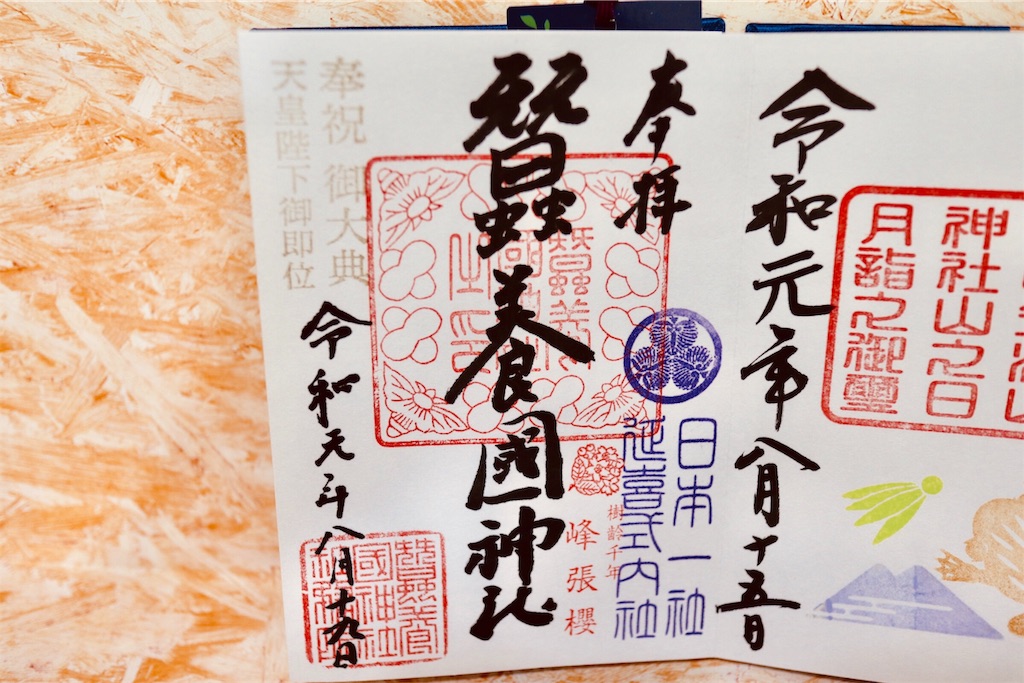 神社山之日
月詣之御璽
令和元年八月十五日
奉拝
日本一社
延喜式内社
樹齢千年
峰張櫻
蠶養國神社
奉祝 御大典
天皇陛下御即位
令和元年八月十九日
蠶養
國神社